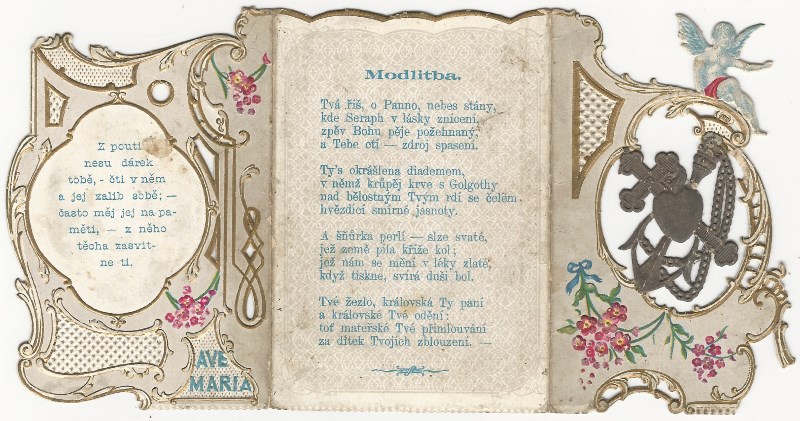 Z pouti
nesu dárek
tobě, - čti v něm
a jej zalib sobě; —
často měj jej na pa-
měti, — z něho
těcha zasvit-
ne ti.
AVE
MARIA
Modlitba.
Tvá říš, o Panno, nebes stány,
kde Seraph v lásky znícení,
zpěv Bohu pěje požehnaný,
a Tebe ctí — zdroj spasení.
Ty's okrášlena diademem,
v němž krůpěj krve s Golgothy
nad bělostným Tvým rdí se čelem,
hvězdící smírné jasnoty.
A šňůrka perlí — slze svaté,
jež země pila kříže kol;
jež nám se mění v léky zlaté,
když tiskne, svírá duši bol.
Tvé žezlo, královská Ty paní
a královské Tvé odění:
toť mateřské Tvé přimlouvání
za dítek Tvojich zblouzení. —